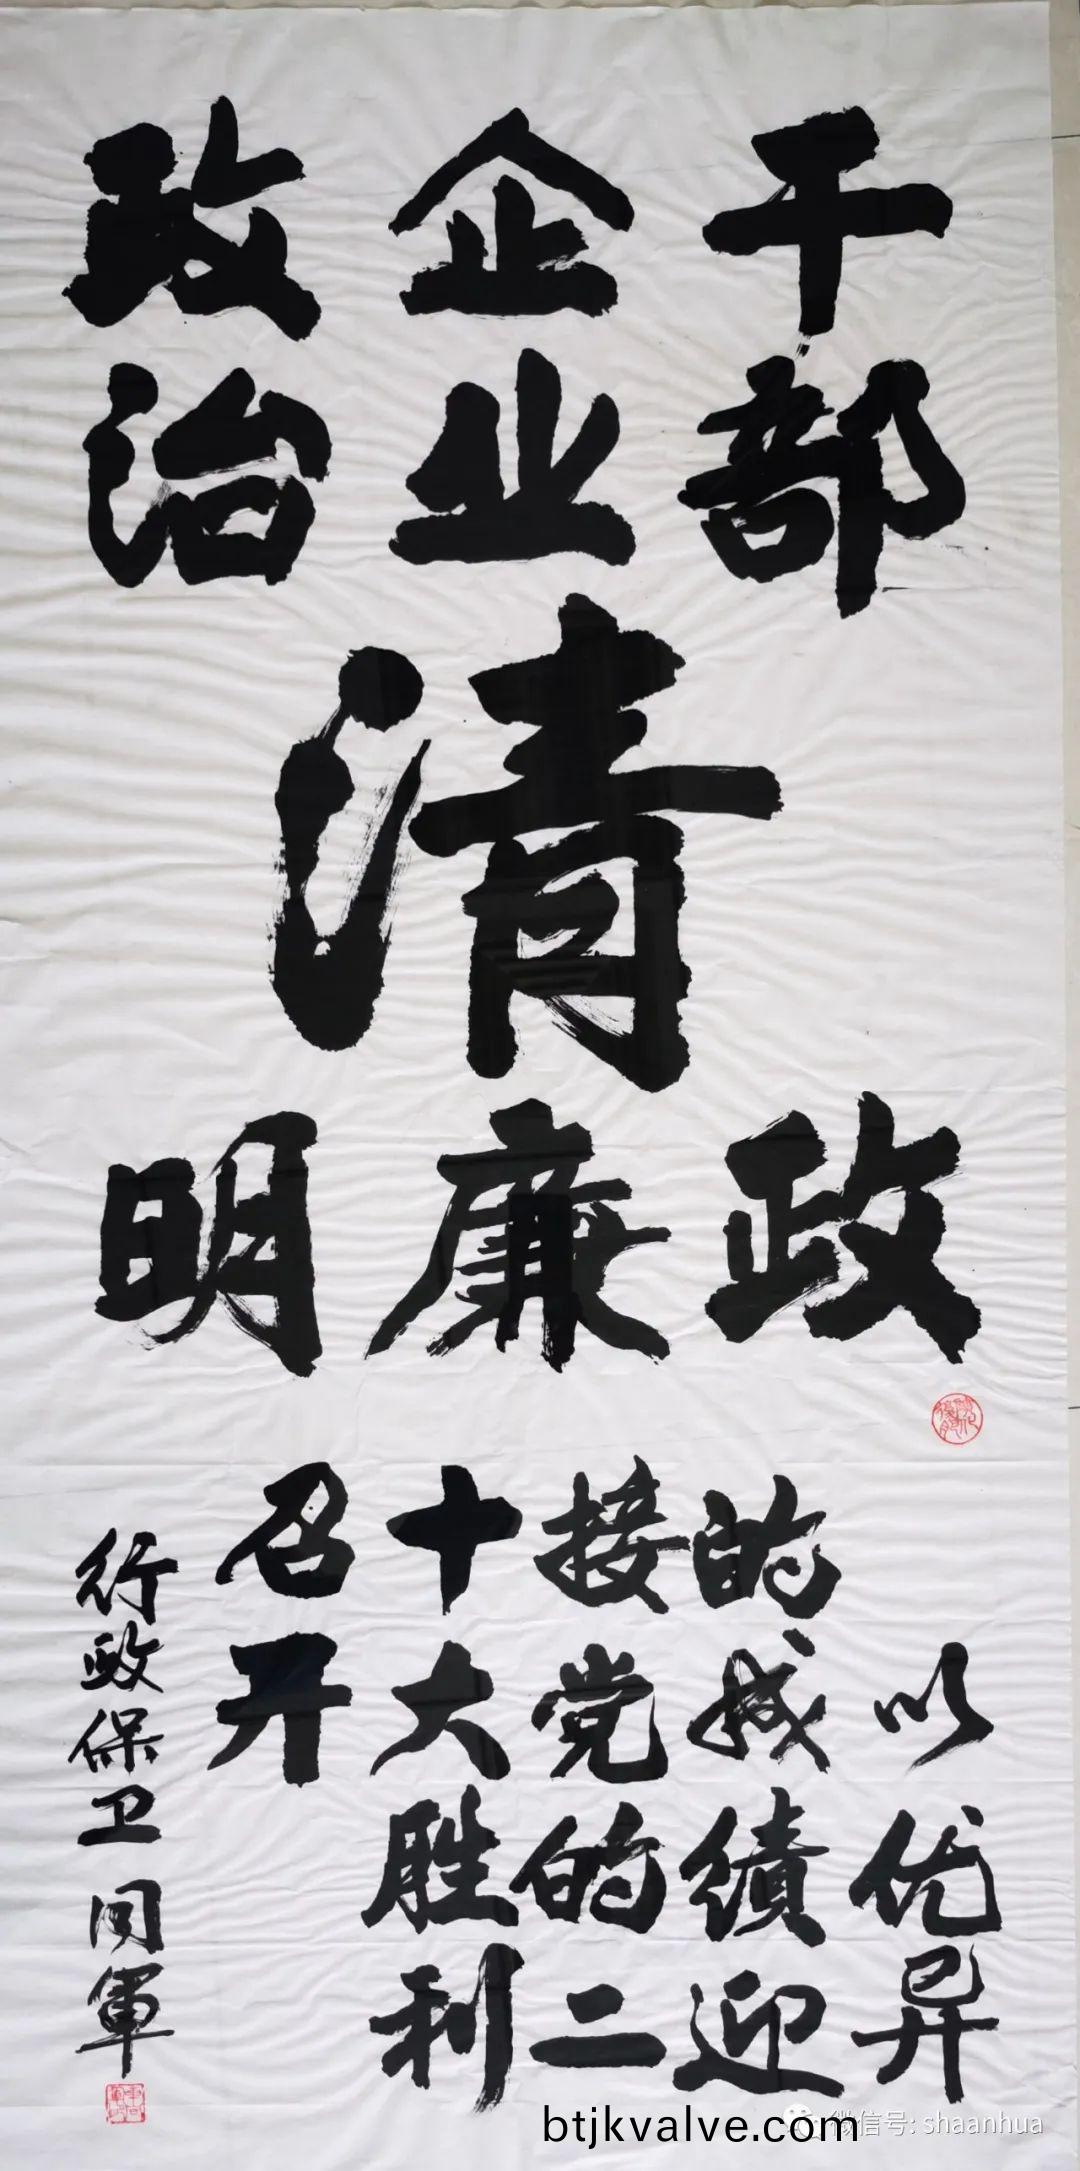 干部
企业
政治
清
政
廉
明
以优异
的成绩迎
接党的二
十大胜利
召开
行政保卫 軍
btjkvalve.com
微信号: shaanhua